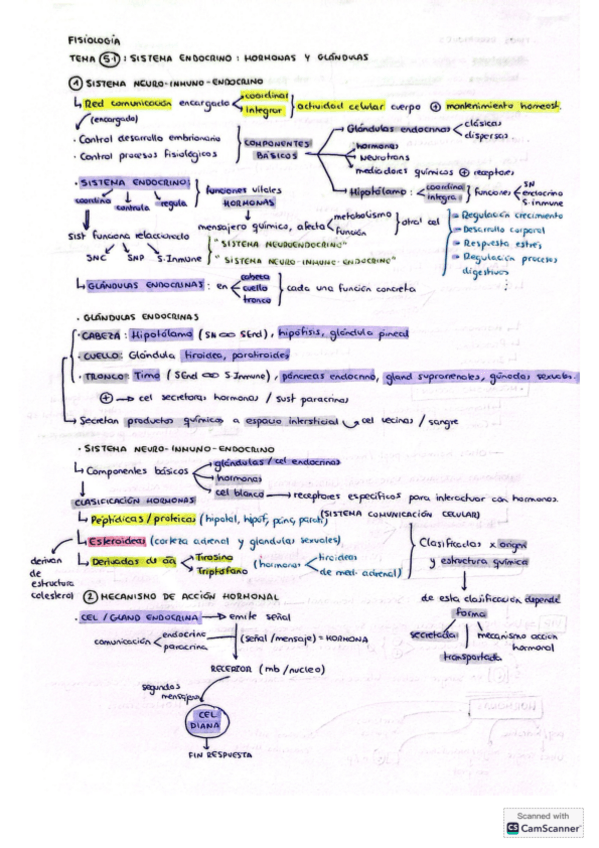 FISIOLOGÍA
TEMA 5.1: SISTEMA ENDOCRINO: HORMONAS Y GLÁNDULAS
① SISTEMA NEURO-INMUNO-ENDOCRINO
↳ Red comunicación encargado coordinar integrar actividad celular cuerpo ⊕ mantenimiento homeost.
(encargado)
· Control desarrollo embrionario
· Control procesos fisiológicos
COMPONENTES BÁSICOS
Glándulas endocrinas clásicas dispersas
hormonas
neurotrans
mediadores químicos ⊕ receptores
Hipotálamo: coordina integra funciones SN endocrino S. inmune
· SISTEMA ENDOCRINO: funciones vitales
coordina controla regula HORMONAS
mensajero químico, afecta metabolismo función otral cel
Regulación crecimiento
Desarrollo corporal
Respuesta estrés
Regulación procesos digestivos
Sist funciona relacionado
SNC SNP S.Inmune
"SISTEMA NEUROENDOCRINO"
"SISTEMA NEURO-INMUNE-ENDOCRINO"
↳ GLÁNDULAS ENDOCRINAS: en cabeza cuello tronco cada una función concreta
· GLÁNDULAS ENDOCRINAS
· CABEZA: Hipotálamo (SN ∞ SEnd), hipófisis, glándula pineal
· CUELLO: Glándula tiroidea, paratiroides
· TRONCO: Timo (SEnd ∞ S Inmune), páncreas endocrino, gland suprarrenales, gónadas sexuales.
⊕ → cel secretoras hormonas / sust paracrinas
↳ Secretan productos químicos a espacio intersticial → cel vecinas / sangre
· SISTEMA NEURO-INMUNO-ENDOCRINO
↳ Componentes básicos glándulas / cel endocrinas
hormonas
cel blanco → receptores específicos para interactuar con hormonas.
CLASIFICACIÓN HORMONAS (SISTEMA COMUNICACIÓN CELULAR)
↳ Peptídicas / proteicas (hipotal, hipóf, pánc, parati)
↳ Esteroideas (corteza adrenal y glandulas sexuales)
↳ Derivadas de aa Tirosina Triptófano (hormonas tiroideas de med. adrenal)
derivan de estructura colesterol
Clasificadas x origen y estructura química
de esta clasificación depende forma
secretada
mecanismo acción hormonal
transportada
② MECANISMO DE ACCIÓN HORMONAL
· CEL / GLAND ENDOCRINA → emite señal
comunicación endocrina paracrina (señal / mensaje) = HORMONA
RECEPTOR (mb / nucleo)
segundos mensajeros
CEL DIANA
FIN RESPUESTA
Scanned with
CS CamScanner